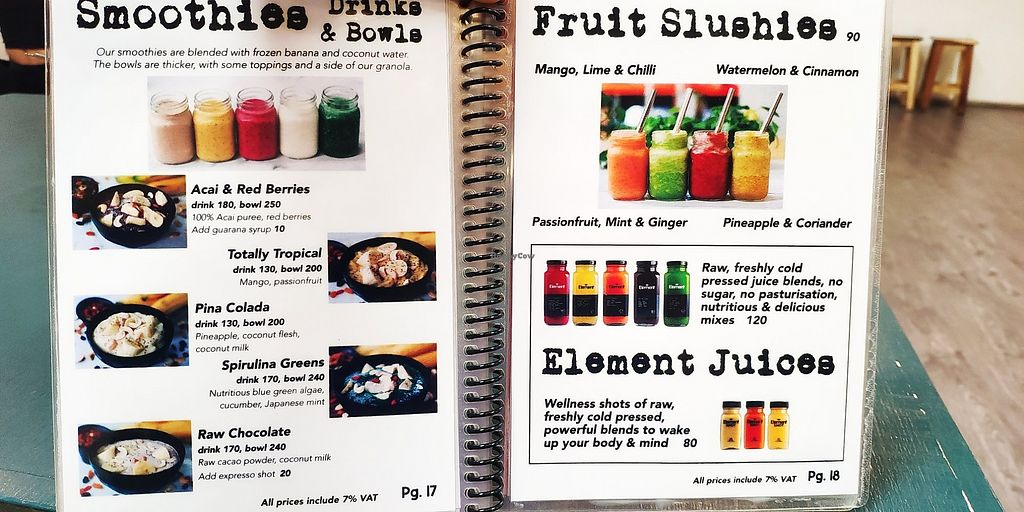 Smoothies Drinks
& Bowls
Our smoothies are blended with frozen banana and coconut water.
The bowls are thicker, with some toppings and a side of our granola.
Acai & Red Berries
drink 180, bowl 250
100% Acai puree, red berries
Add guarana syrup 10
Totally Tropical
drink 130, bowl 200
Mango, passionfruit
Pina Colada
drink 130, bowl 200
Pineapple, coconut flesh,
coconut milk
Spirulina Greens
drink 170, bowl 240
Nutritious blue green algae,
cucumber, Japanese mint
Raw Chocolate
drink 170, bowl 240
Raw cacao powder, coconut milk
Add expresso shot 20
All prices include 7% VAT Pg. 17
Fruit Slushies 90
Mango, Lime & Chilli Watermelon & Cinnamon
Passionfruit, Mint & Ginger Pineapple & Coriander
Raw, freshly cold
pressed juice blends, no
sugar, no pasturisation,
nutritious & delicious
mixes 120
Element Juices
Wellness shots of raw,
freshly cold pressed,
powerful blends to wake
up your body & mind 80
All prices include 7% VAT Pg. 18